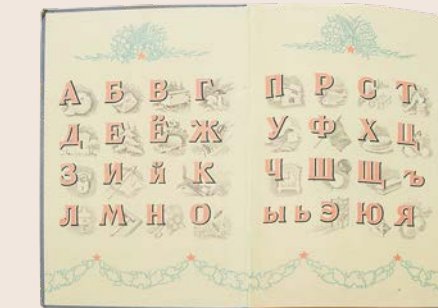 А Б В Г
Д Е Ё Ж
З И й К
Л М Н О
П Р С Т
У Ф Х Ц
Ч Ш Щ ъ
ы ь Э Ю Я